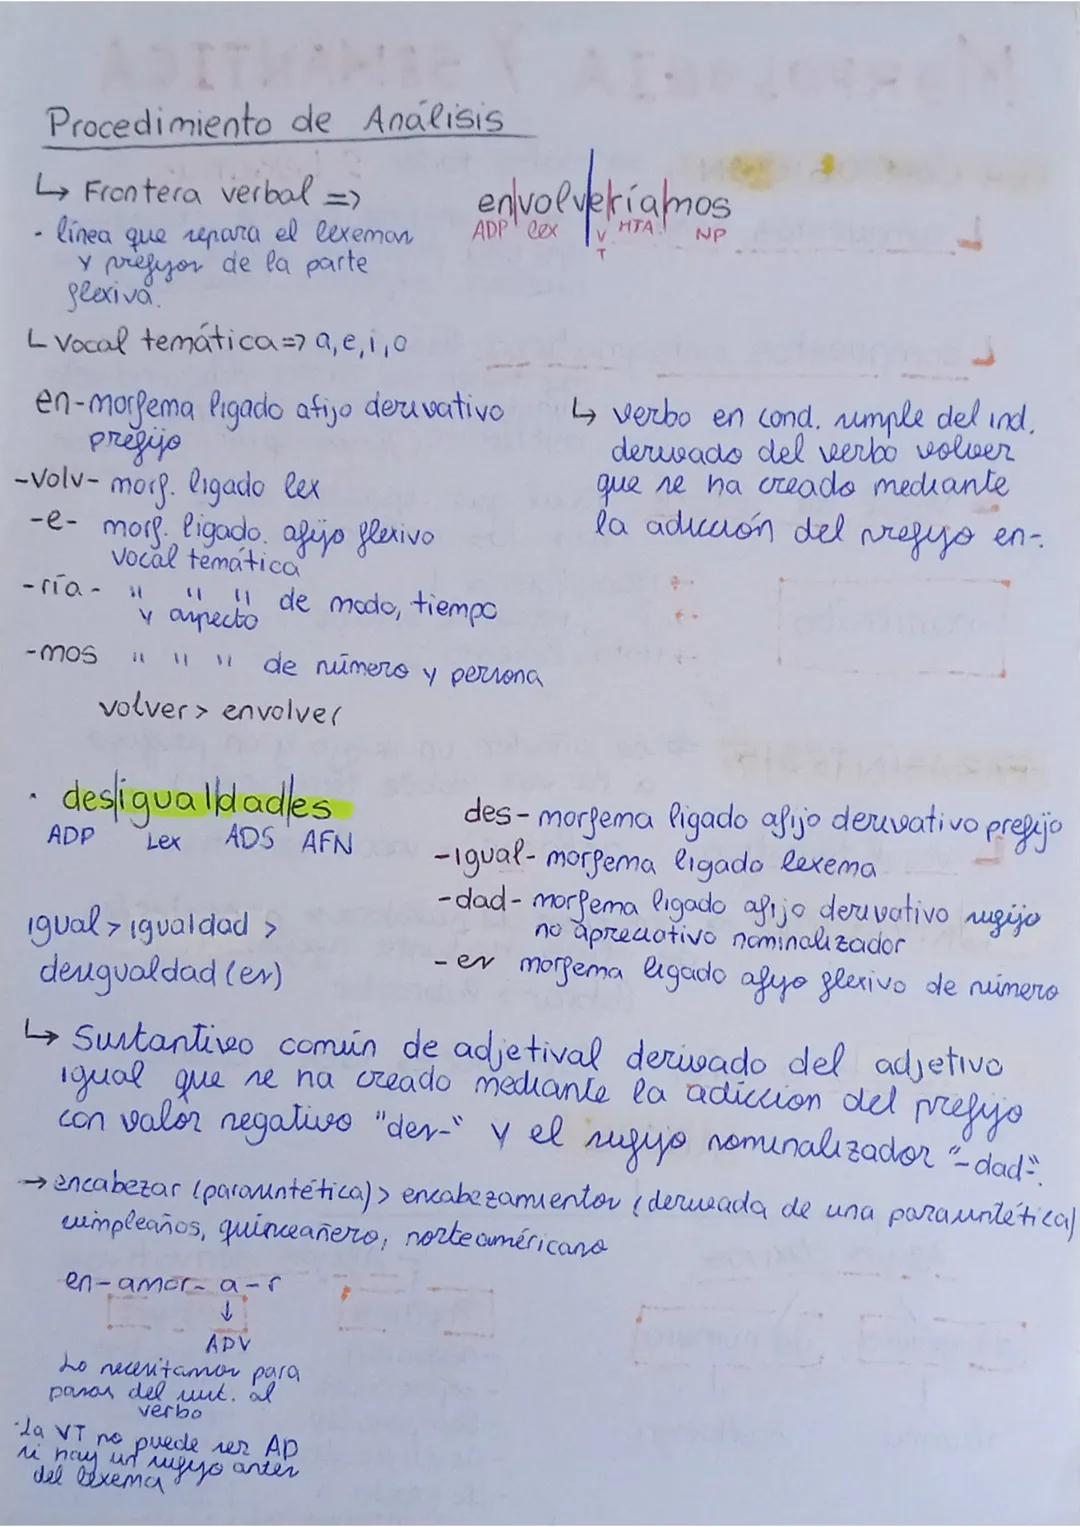 Procedimiento de Análisis
↳ Frontera verbal =>
· línea que separa el lexemas
y prefijos de la parte
flexiva.
en|volv|e|ría|mos
ADP lex VT MTA NP
L Vocal temática => a, e, i, o
en-morfema ligado afijo derivativo
prefijo
-volv- morf. ligado lex
-e- morf. ligado. afijo flexivo
vocal temática
-ría- " " " de modo, tiempo
y aspecto
-mos " " " de número y persona
volver > envolver
↳ verbo en cond. simple del ind.
derivado del verbo volver
que se ha creado mediante
la adicción del prefijo en-.
· des|igual|dad|es
ADP Lex ADS AFN
igual > igualdad >
desigualdad (es)
des- morfema ligado afijo derivativo prefijo
-igual- morfema ligado lexema
-dad- morfema ligado afijo derivativo sufijo
no apreciativo nominalizador
-es morfema ligado afijo flexivo de número
↳ Sustantivo común de adjetival derivado del adjetivo
igual que se ha creado mediante la adiccion del prefijo
con valor negativo "des-" y el sufijo nominalizador "-dad".
→ encabezar (parasintética) > encabezamientos (derivada de una parasintética)
cumpleaños, quinceañero, norteaméricano
en-amor-a-r
↓
ADV
Lo necesitamos para
pasar del sust. al
verbo
·La VT no puede ser AD
si hay un sufijo antes
del lexema